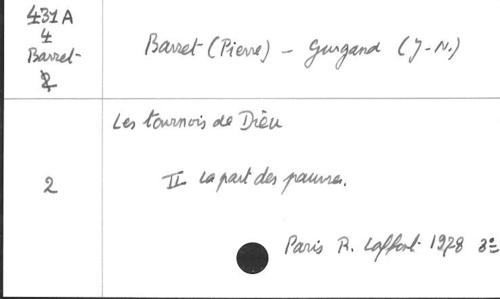 431A
4
Barret-
2
Barret (Pierre) - Gurgand (J-N.)
Les tournois de Dieu
2
II La part des pauvres.
Paris R. Laffont 1978 3e